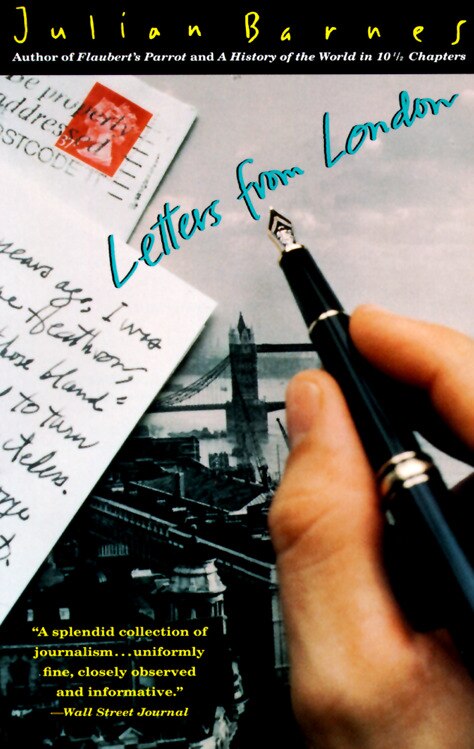 Julian Barnes
Author of Flaubert's Parrot and A History of the World in 10 1/2 Chapters
Be properly
addressed
POSTCODE IT
Letters from London
years ago, I was
those bland-
to turn
"A splendid collection of
journalism...uniformly
fine, closely observed
and informative."
—Wall Street Journal